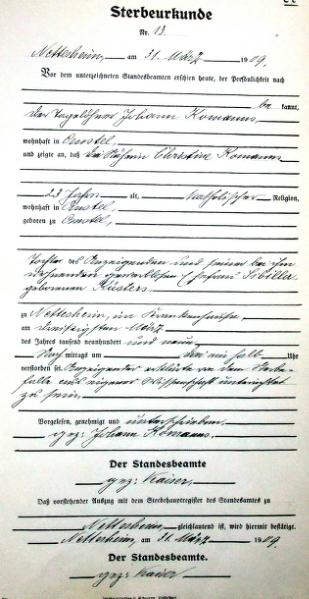 Sterbeurkunde
Nr. 13.
Nettersheim, am 31. März 1909.
Vor dem unterzeichneten Standesbeamten erschien heute, der Persönlichkeit nach
be kannt,
der Tagelöhner Johann Komanns
wohnhaft in
und zeigte an, daß die Näherin Christine Komanns
alt, katholischer Religion,
wohnhaft in
geboren zu
Tochter des Anzeigenden und seiner bei ihm
wohnenden Ehefrau Sibilla
geborenen Küsters
zu Nettersheim, im Krankenhause,
am dreißigsten März
des Jahres tausend neunhundert und neun,
Nachmittags um halb Uhr
verstorben sei. Anzeigender erklärte von dem Sterbe-
falle aus eigener Wissenschaft unterrichtet
zu sein.
Vorgelesen, genehmigt und unterschrieben
gez: Johann Komanns.
Der Standesbeamte
gez: Kaiser.
Daß vorstehender Auszug mit dem Sterbehauptregister des Standesamtes zu
Nettersheim gleichlautend ist, wird hiermit bestätigt.
Nettersheim, am 31. März 1909.
Der Standesbeamte.
gez: Kaiser